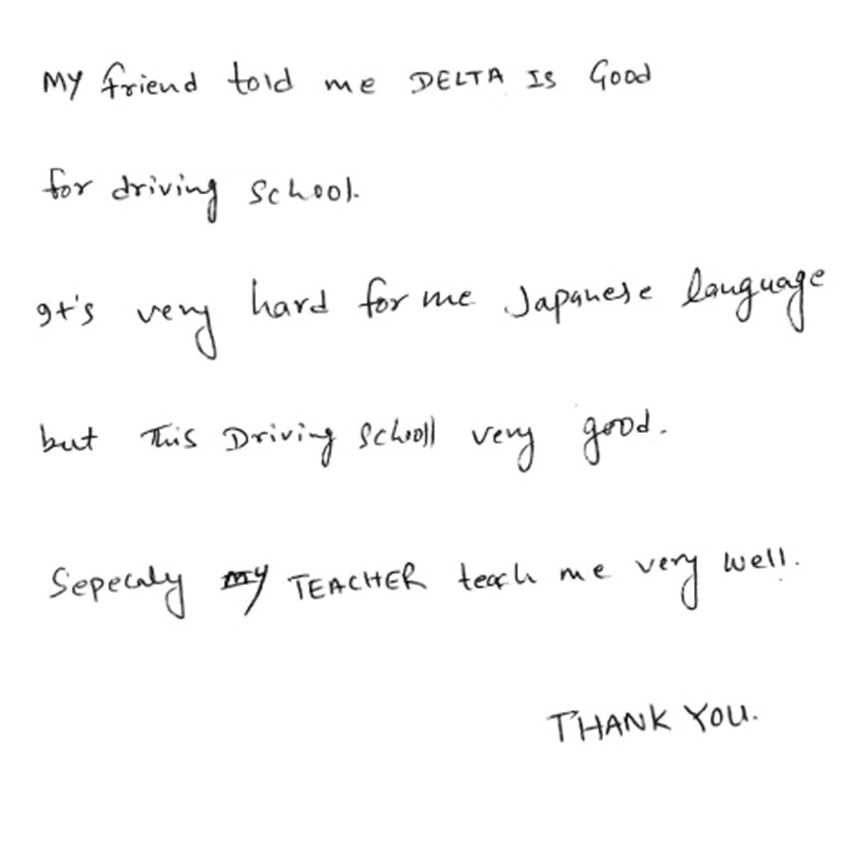 MY friend told me DELTA IS Good
for driving School.
It's very hard for me Japanese language
but This Driving Schooll very good.
Sepecaly my TEACHER teach me very well.
THANK YOU.